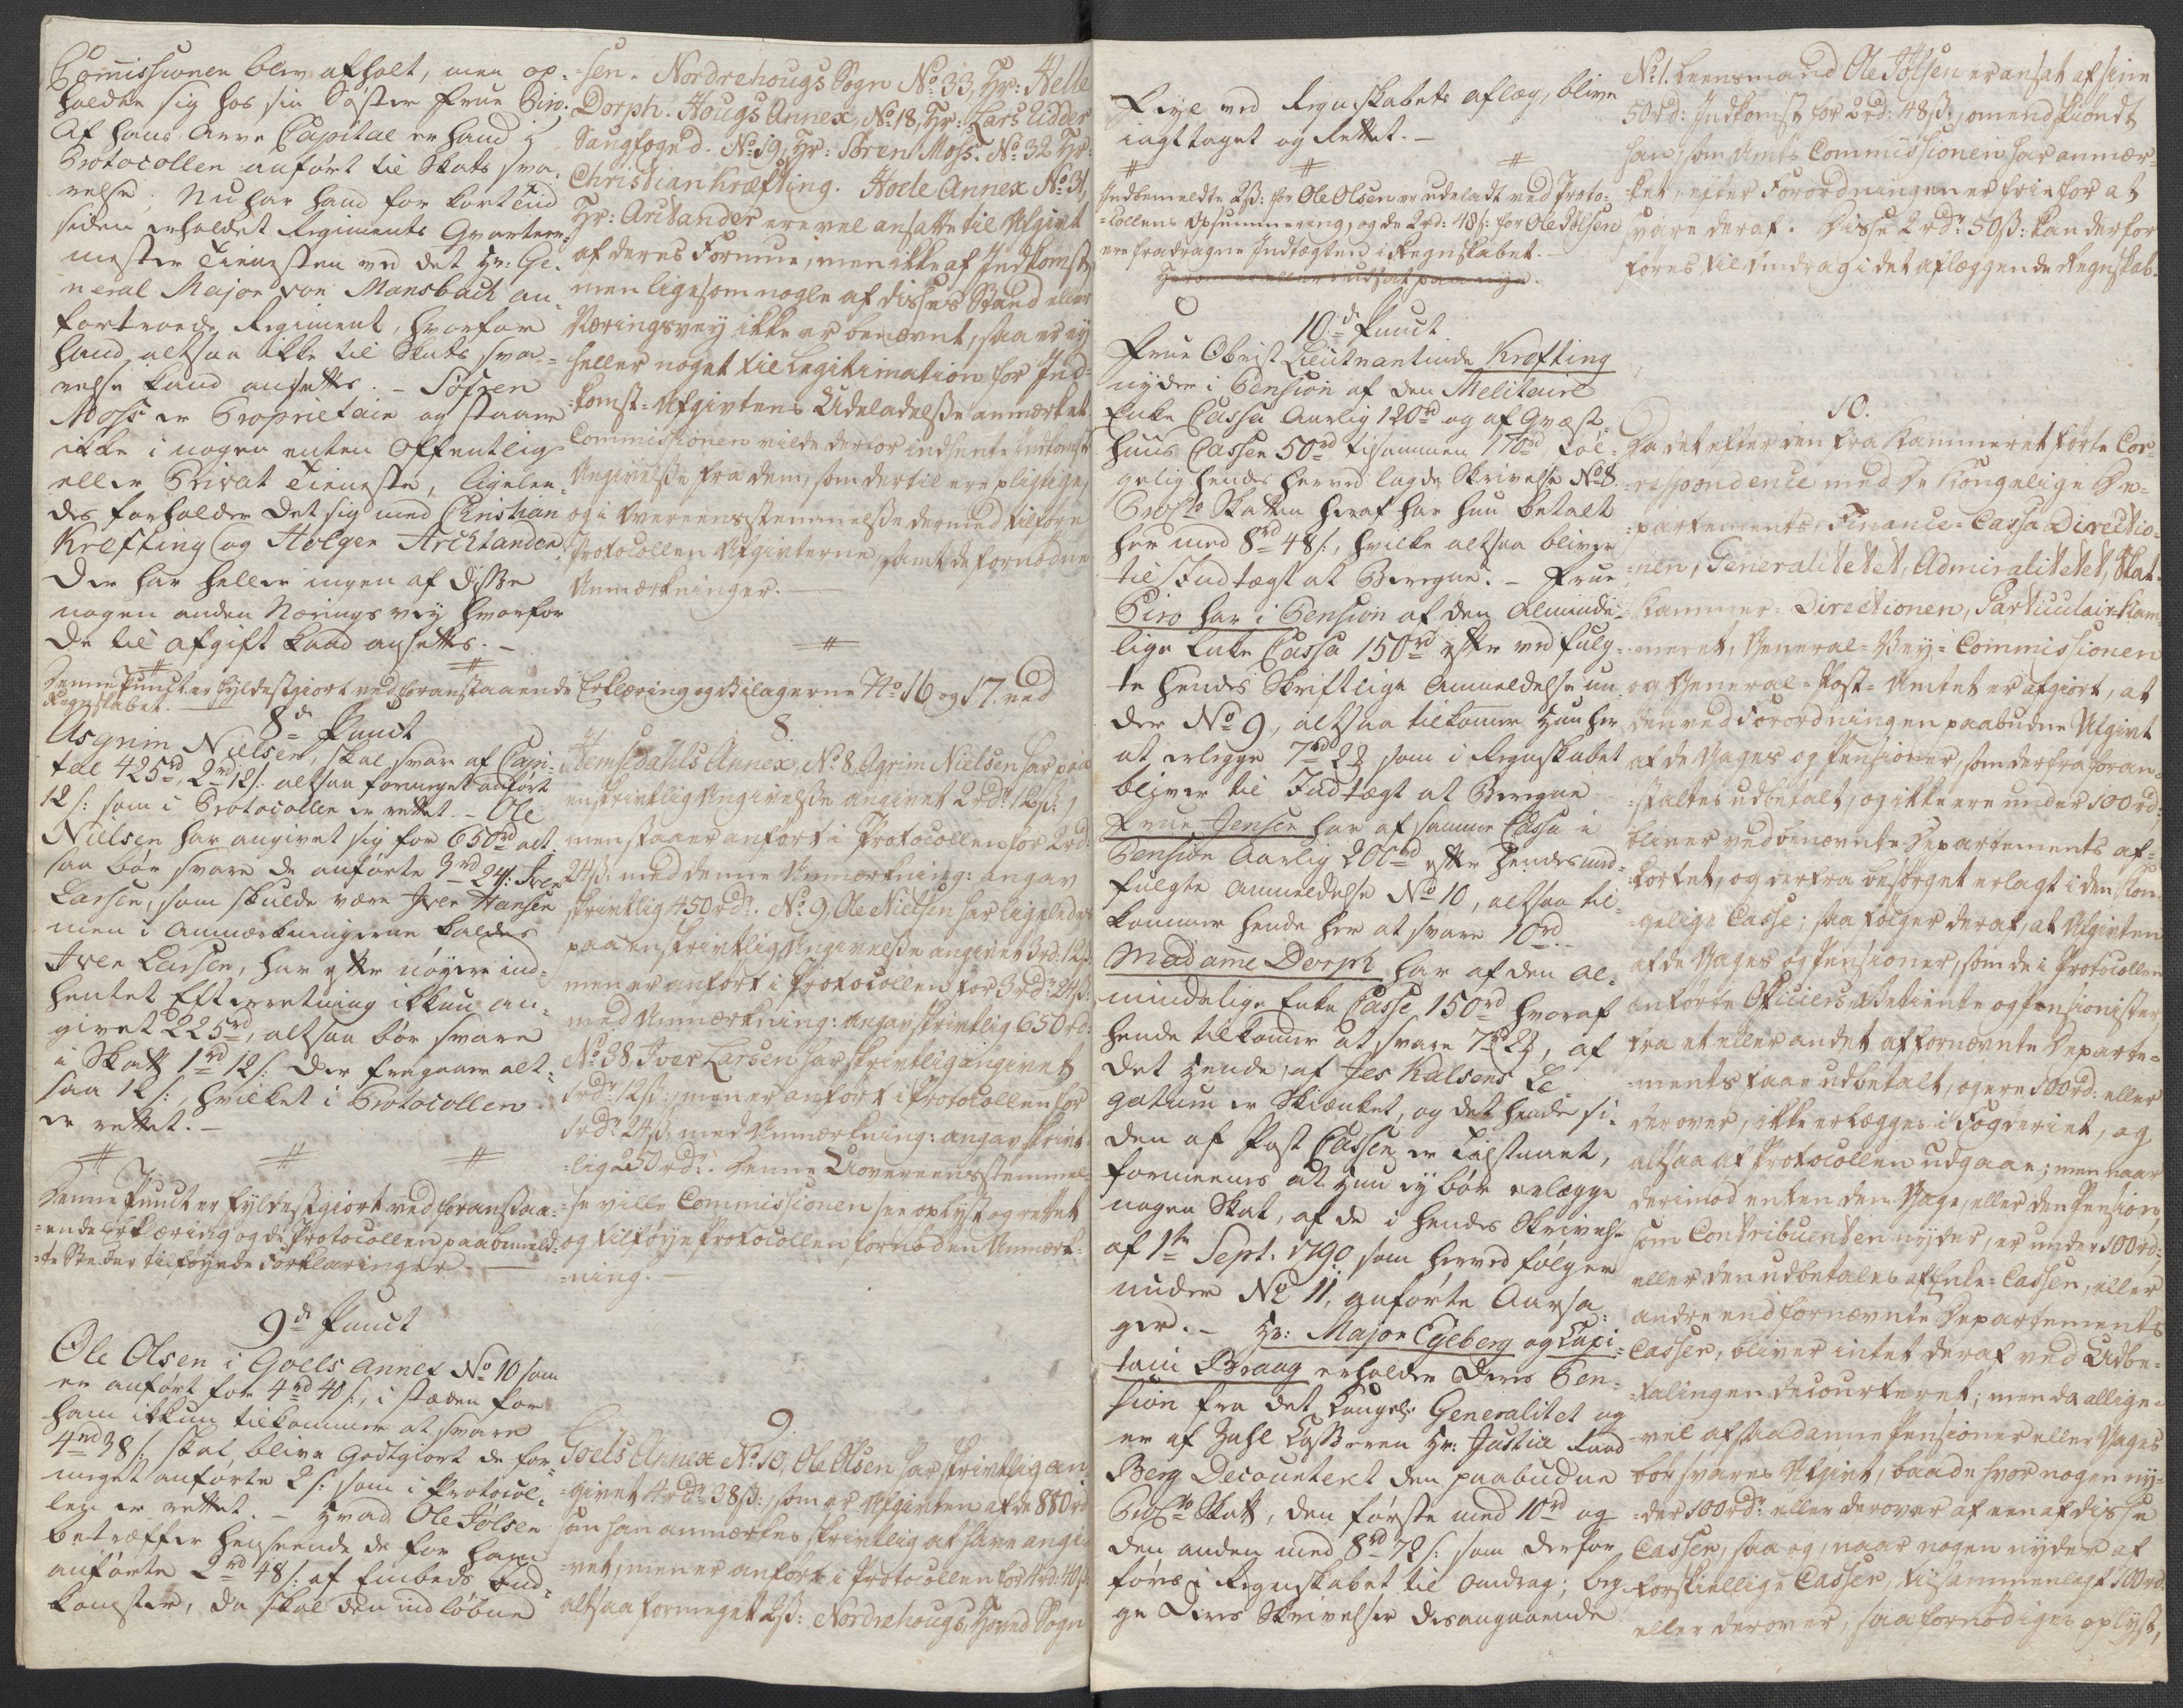 Commissionen blev afholt, men op-
holder sig hos sin Søster Frue Biro.
Af hans Arve Capital er hand i
Protocollen anført til Skats sva-
relse; Nu har hand for kort tiid
siden erholdet Regiments Qvarteer-
mester Tienesten ved det Hr: Ge-
neral Major von Mansbach an-
fortroede Regiment, hvorfor
hand altsaa ikke til Skats sva-
relse kand ansettes. - Søfren
Moss er Proprietair og staaer
ikke i nogen enten Offentlig
eller Privat Tieneste, ligelee-
des forholder det sig med Christian
Krefting og Holger Arctander.
Der har heller ingen af disse
nogen anden Nærings vey hvorfor
de til afgift kand ansettes. -
Denne Punct er fyldestgiort ved foranstaaende Erklæring og Bilagerne No 16 og 17. ved
Regnskabet.
8de Punct
Asgrim Nielsen, skal svare af Capi-
tal 425rd, 2rd 12s. altsaa formeget anført
12 s: som i Protocollen er rettet. - Ole
Nielsen har angivet sig for 650rd alt-
saa bør svare de anførte 3rd 24s: Iver
Larsen, som skulde være Iver Hansen
men i Anmærkningerne kaldes
Iver Larsen, har efter nøyere ind-
hentet Efterretning ikkun an-
givet 225rd, altsaa bør svare
i Skatt 1rd 12 s. der fragaaer alt-
saa 12 s:, hvilket i Protocollen
er rettet. -
Denne Punct er fyldestgiort ved foranstaa-
-ende Erklæring og de i Protocollen paabemeld-
-te Steder tilføyede Forklaringer.
9de Punct
Ole Olsen i Goels Annex No 10 som
er anført for 4rd 40 s., i stæden for
ham ikkun tilkommer at svare
4rd 38 s. skal blive Godtgiort de for-
meget anførte 2 s: som i Protocol-
len er rettet. - Hvad Ole Jølsen
betræffer henseende de for ham
anførte 2rd 48 s. af Embeds Ind-
komster, da skal den indløbne
-sen. Nordrehougs Sogn No 33, Hr: Helle
Dorph. Hougs Annex, No 18, Hr: Lars Ridder
Saugfoged. No 19, Hr: Søren Moss. No 32 Hr:
Christian Kræfting. Hole Annex No 31,
Hr: Arctander ere vel ansatte til Afgivt
af deres Formue, men ikke af Indkomst,
men ligesom nogle af disses Stand eller
Næringsvey ikke er benævnt, saa er ey
heller noget til Legitimation for Ind-
-komst-Afgivtens Udeladelse anmærket.
Commissionen vilde derfor indhente Indkomst
Angivelse fra dem, som dertil ere pligtige,
og i Overeensstemmelse dermed tilføre
Protocollen Afgivterne, samt de fornødne
Anmærkninger. -
8.
Hemsedahls Annex, No 8, Agrim Nielsen har paa
en skrivtlig Angivelse angivet 2 rdr 12 ß:,
men staaer anført i Protocollen for 2 rd:
24 ß: med denne Anmærkning: angav
skrivtlig 450 rdr. No 9. Ole Nielsen har ligeledes
paa en skrivtlig Angivelse angivet 3 rd: 12 ß:
men er anført i Protocollen for 3 rdr 24 ß:
med Anmærkning: Angav skrivtlig 650 rd:
No 38 Iver Larsen har skrivtlig angivet
1 rdr 12 ß:, men er anført i Protocollen for
1 rdr 24 ß: med Anmærkning: angav skrivt-
-lig 250 rdr. Denne Uovereensstemmel-
-se ville Commissionen see oplyst og rettet
og tilføye Protocollen fornøden Anmærk-
-ning. -
9.
Goels Annex No 10, Ole Olsen har skrivtlig an-
-givet 4 rdr 38 ß:, som er Afgivten af de 880 rd
som han anmærkes skrivtlig at have angi-
-vet, men er anført i Protocollen for 4 rd: 40 ß:
altsaa formeget 2 ß: Nordrehougs, Hoved Sogn
Feyl ved Regnskabets aflæg, blive
iagttaget og Rettet. -
Indbemeldte 2 ß: for Ole Olsen er udeladt ved Proto-
-collens Opsummering, og de 2 rd: 48 ß: for Ole Jølsen
ere fradragne Indtægten i Regnskabet.
10de Punct
Frue Obrist Lieutnantinde Krefting
nyder i Pension af den Melitaire
Enke Cassa Aarlig 120rd og af Qvæst-
huus Cassen 50rd tilsammen 170rd føl-
gelig hendes herved lagde Skrivelse No 8.
Procto Skatten heraf har hun betalt
her med 8rd 48 s., hvilke altsaa bliver
til Indtægt at Beregne. - Frue
Biro har i Pension af den Alminde-
lige Enke Cassa 150rd efter ved fulg-
te hendes Skriftlige Anmeldelse un-
der No 9, altsaa tilkommer Hun her
at erlegge 7rd 2 ß som i Regnskabet
bliver til Indtægt at Beregne
Frue Jensen har af samme Cassa i
Pension Aarlig 200rd efter hendes med-
fulgte Anmeldelse No 10, altsaa til-
kommer hende her at svare 10rd.
Madame Dorph har af den al-
mindelige Enke Casse 150rd hvoraf
hende tilkommer at svare 7rd 2 ß, af
det hende, af Jes Kalsens Le-
gatum er Skienket, og det hende si-
den af Post Cassen er tilstaaet,
formeenes at hun ey bør erlægge
nogen Skat, af de i hendes Skrivelse
af 1te Sept. 1790. som herved følger
under No 11, anførte Aarsa-
ger. - Hr: Major Egeberg og Capi-
tain Braag erholder deres Pen-
sion fra det Kongel: Generalitet og
er af Zahl Casseren Hr: Justice Raad
Berg Decourteret den paabudne
Procto Skatt, den første med 10rd og
den anden med 8rd 72 s: som derfor
føres i Regnskabet til Omdrag; beg-
ge deres Skrivelser desangaaende
No 1. Leensmand Ole Jølsen er ansat af sine
50 rd: Indkomst for 2 rd: 48 ß:, omendskiøndt
han, som Amts Commissionen har anmær-
-ket, efter Forordningen er frie for at
svare deraf. Disse 2 rdr 50 ß: kan derfor
føres til Omdrag i det aflæggende Regnskab.
10.
Da det efter den fra Kammeret førte Cor-
-respondence med de Kongelige De-
-partementer, Finance-Cassa Directio-
-nen, Generalitetet, Admiralitetet, Skat-
-kammer-Directionen, Particulair-Kam-
-meret, General-Vey-Commissionen
og General-Post-Amtet er afgiort, at
den ved Forordningen paabudne Afgivt
af de Gages og Pensioner, som derfra foran-
-staltes udbetalt, og ikke ere under 100 rd:,
bliver ved benævnte Departements af-
-kortet, og derfra besørget erlagt i den Kon-
-gelige Casse; saa følger deraf, at Afgivten
af de Gages og Pensioner, som de i Protocollen
anførte Officiers, Betiente og Pensionister
fra et eller andet af fornævnte Departe-
-ments faar udbetalt, og ere 100 rd: eller
derover, ikke erlægges i Fogderiet, og
altsaa af Protocollen udgaae; men naar
derimod enten den Gage, eller den Pension,
som Contribuenten nyder, er under 100 rd:,
eller den udbetales af Enke-Cassen, eller
andre end fornævnte Departements
Casser, bliver intet deraf ved Udbe-
-talingen decourteret; men da allige-
-vel af saadanne Pensioner eller Gages
bør svares Afgivt, baade hvor nogen ny-
-der 100 rdr eller derover af een af disse
Casser, saa og, naar nogen nyder af
forskiellige Casser, tilsammenlagt 100 rd:
eller derover, saa fornødiges oplyst,